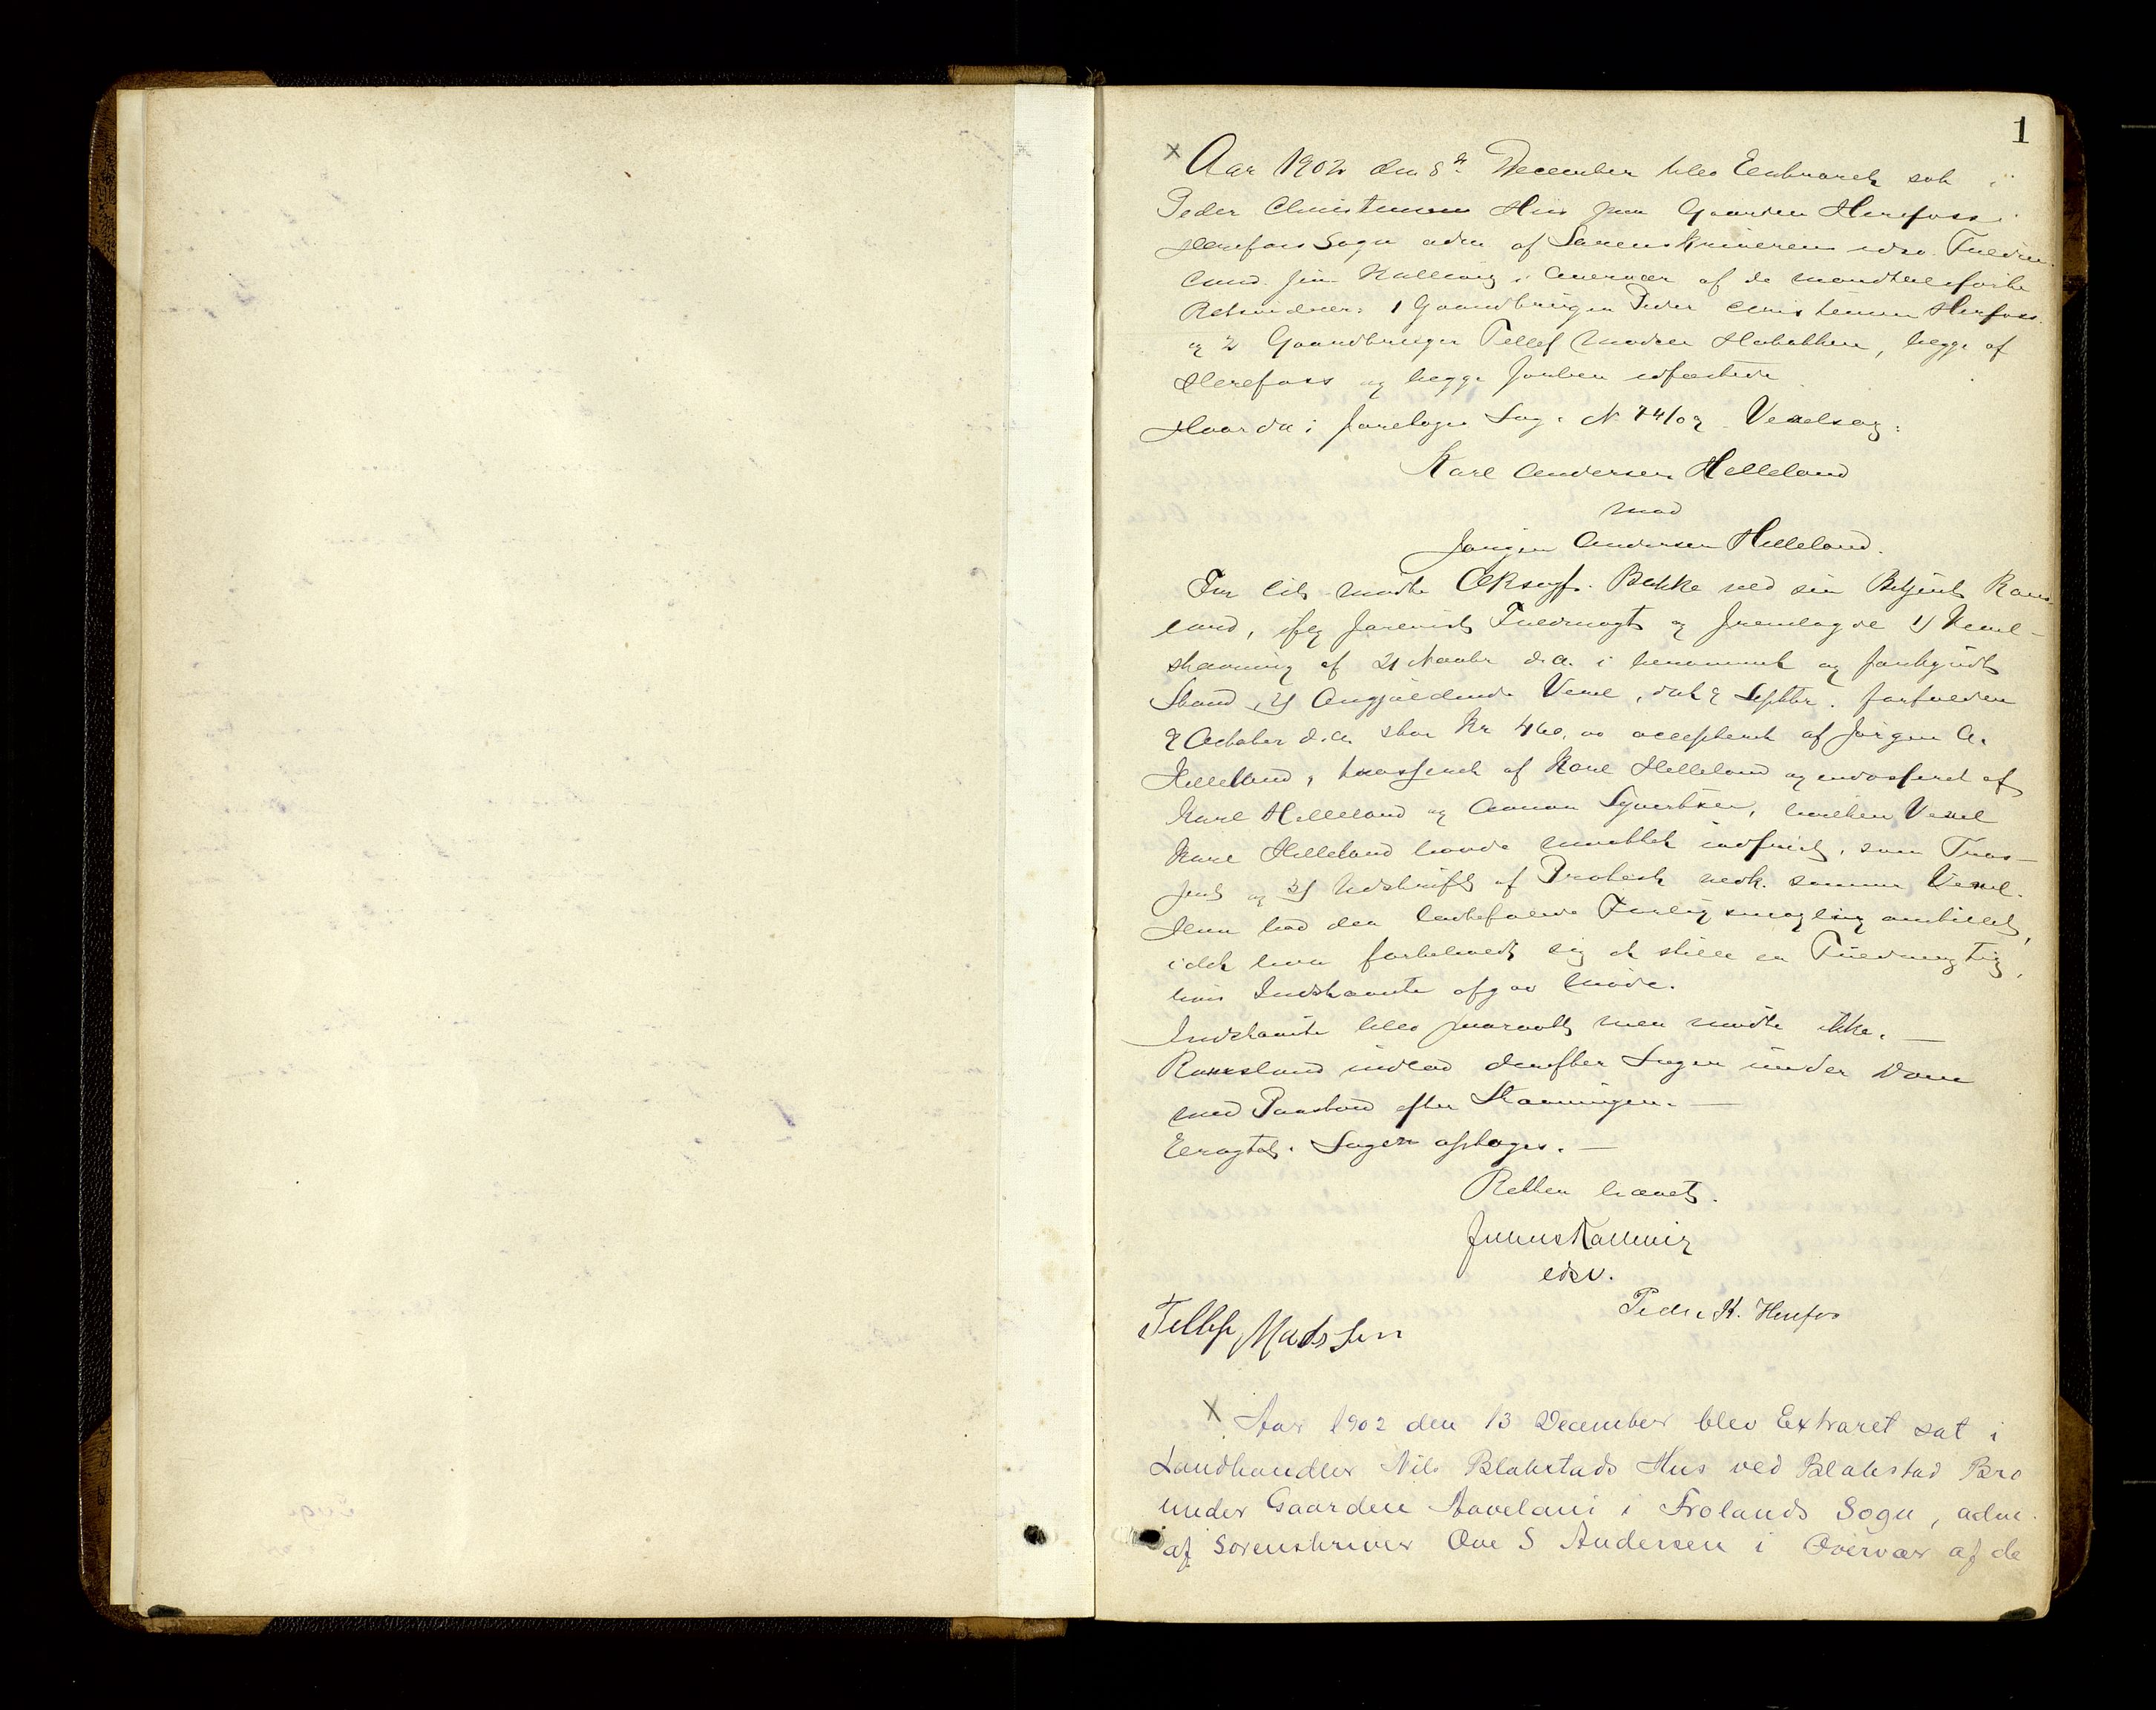 1
x Aar 1902 den 8de December blev Extraret sat i
Peder Christensens Hus paa Gaarden Herefoss i
Herefoss Sogn adm af Sorenskriverens edsv. Fuldm.
cand. jur. Kallevig i Overvær af de mandtalsførte
Retsvidner: 1 Gaardbruger Peder Christensen Herefoss
og 2 Gaardbruger Tellef Madsen, begge af
Herefoss og begge forhen edfæstede
Hvorda i foretoges Sag: N 74/02 Vexelsag:
Karl Andersen Helleland
mod
Jørgen Andersen Helleland.
For Cit. mødte ORsagf. Bakke ved sin Betjent Rans-
land, ifølg forevist Fuldmagt og fremlagde 1) Vexel-
stævning af 21 Novbr d.a. i berammet og forkyndt
Stand, 2) Angjældende Vexel, dat 9 Septbr. forfalden
9 October d.a. stor Kr 460,00 accepteret af Jørgen A.
Helleland, trasseret af Karl Helleland og endosseret af
Karl Helleland og Aanon Syvertsen, hvilken Vexel
Karl Helleland havde maattet indfriet, som Tras-
sent og 3) Udskrift af Protest vedk. samme Vexel.
Han lod den lovbefalede Forligsmægling anbillet,
idet han forbeholdt sig at stille en Fuldmægtig,
hvis Indstævnte afgav Møde.
Indstævnte blev paaraabt men mødte ikke. —
Ransland indlod derefter Sagen under Dom
med Paastand efter Stævningen. —
Eragtet: Sagen optages. —
Retten hævet.
Julius Kallevig
edsv.
Peder K. Herefos
Tellef Madssen
x Aar 1902 den 13 December blev Extraret sat i
Landhandler Nils Blakstads Hus ved Blakstad Bro
under Gaarden i Frolands Sogn, adm.
af Sorenskriver Ove S Andersen i Overvær af de